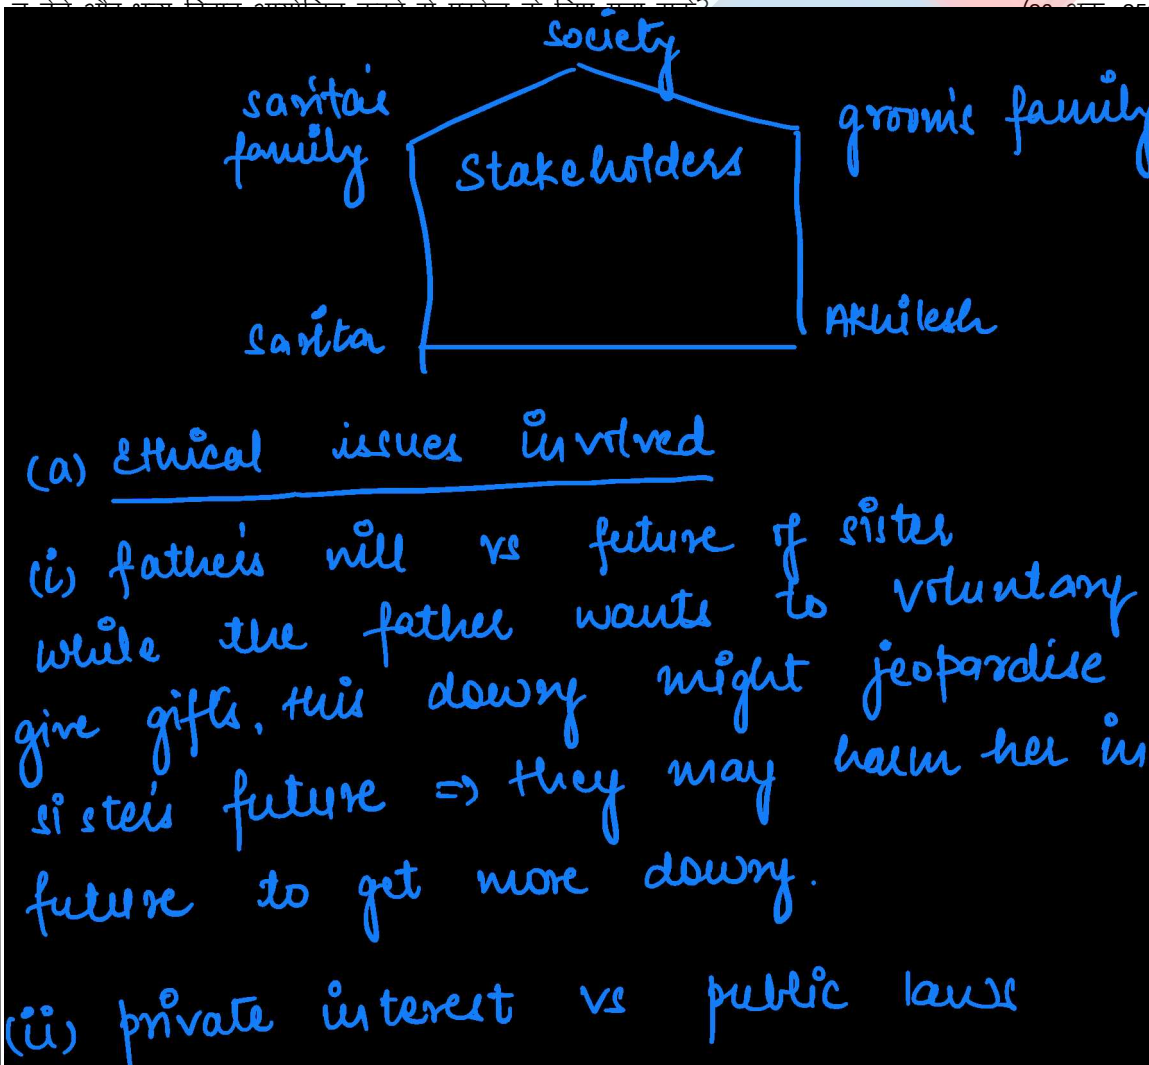 society
sarita's
family
groom's family
Stakeholders
Sarita
Akhilesh
(a) Ethical issues involved
(i) father's will vs future of sister
while the father wants to voluntary
give gifts, this dowry might jeopardise
sister's future => they may harm her in
future to get more dowry.
(ii) private interest vs public laws